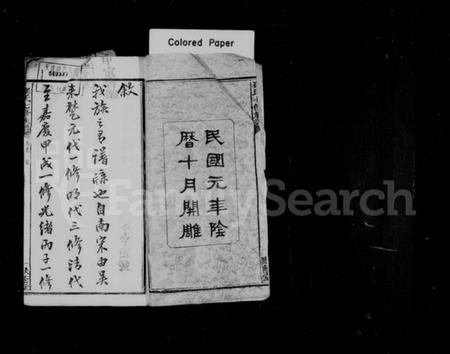 Colored Paper
民國元年陰
曆十月開雕
敘
我族之有譜諜也自南宋由吳
來楚元代一修明代三修清代
至嘉慶甲戌一修光緒丙子一修
FamilySearch